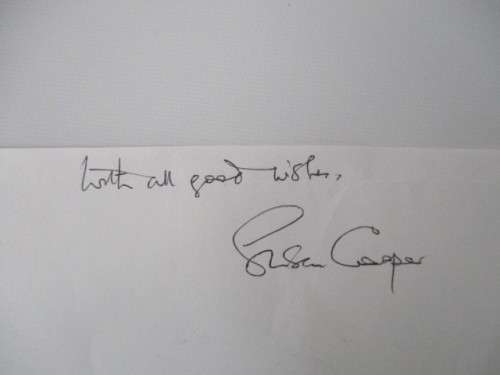 With all good wishes,
Susan Cooper